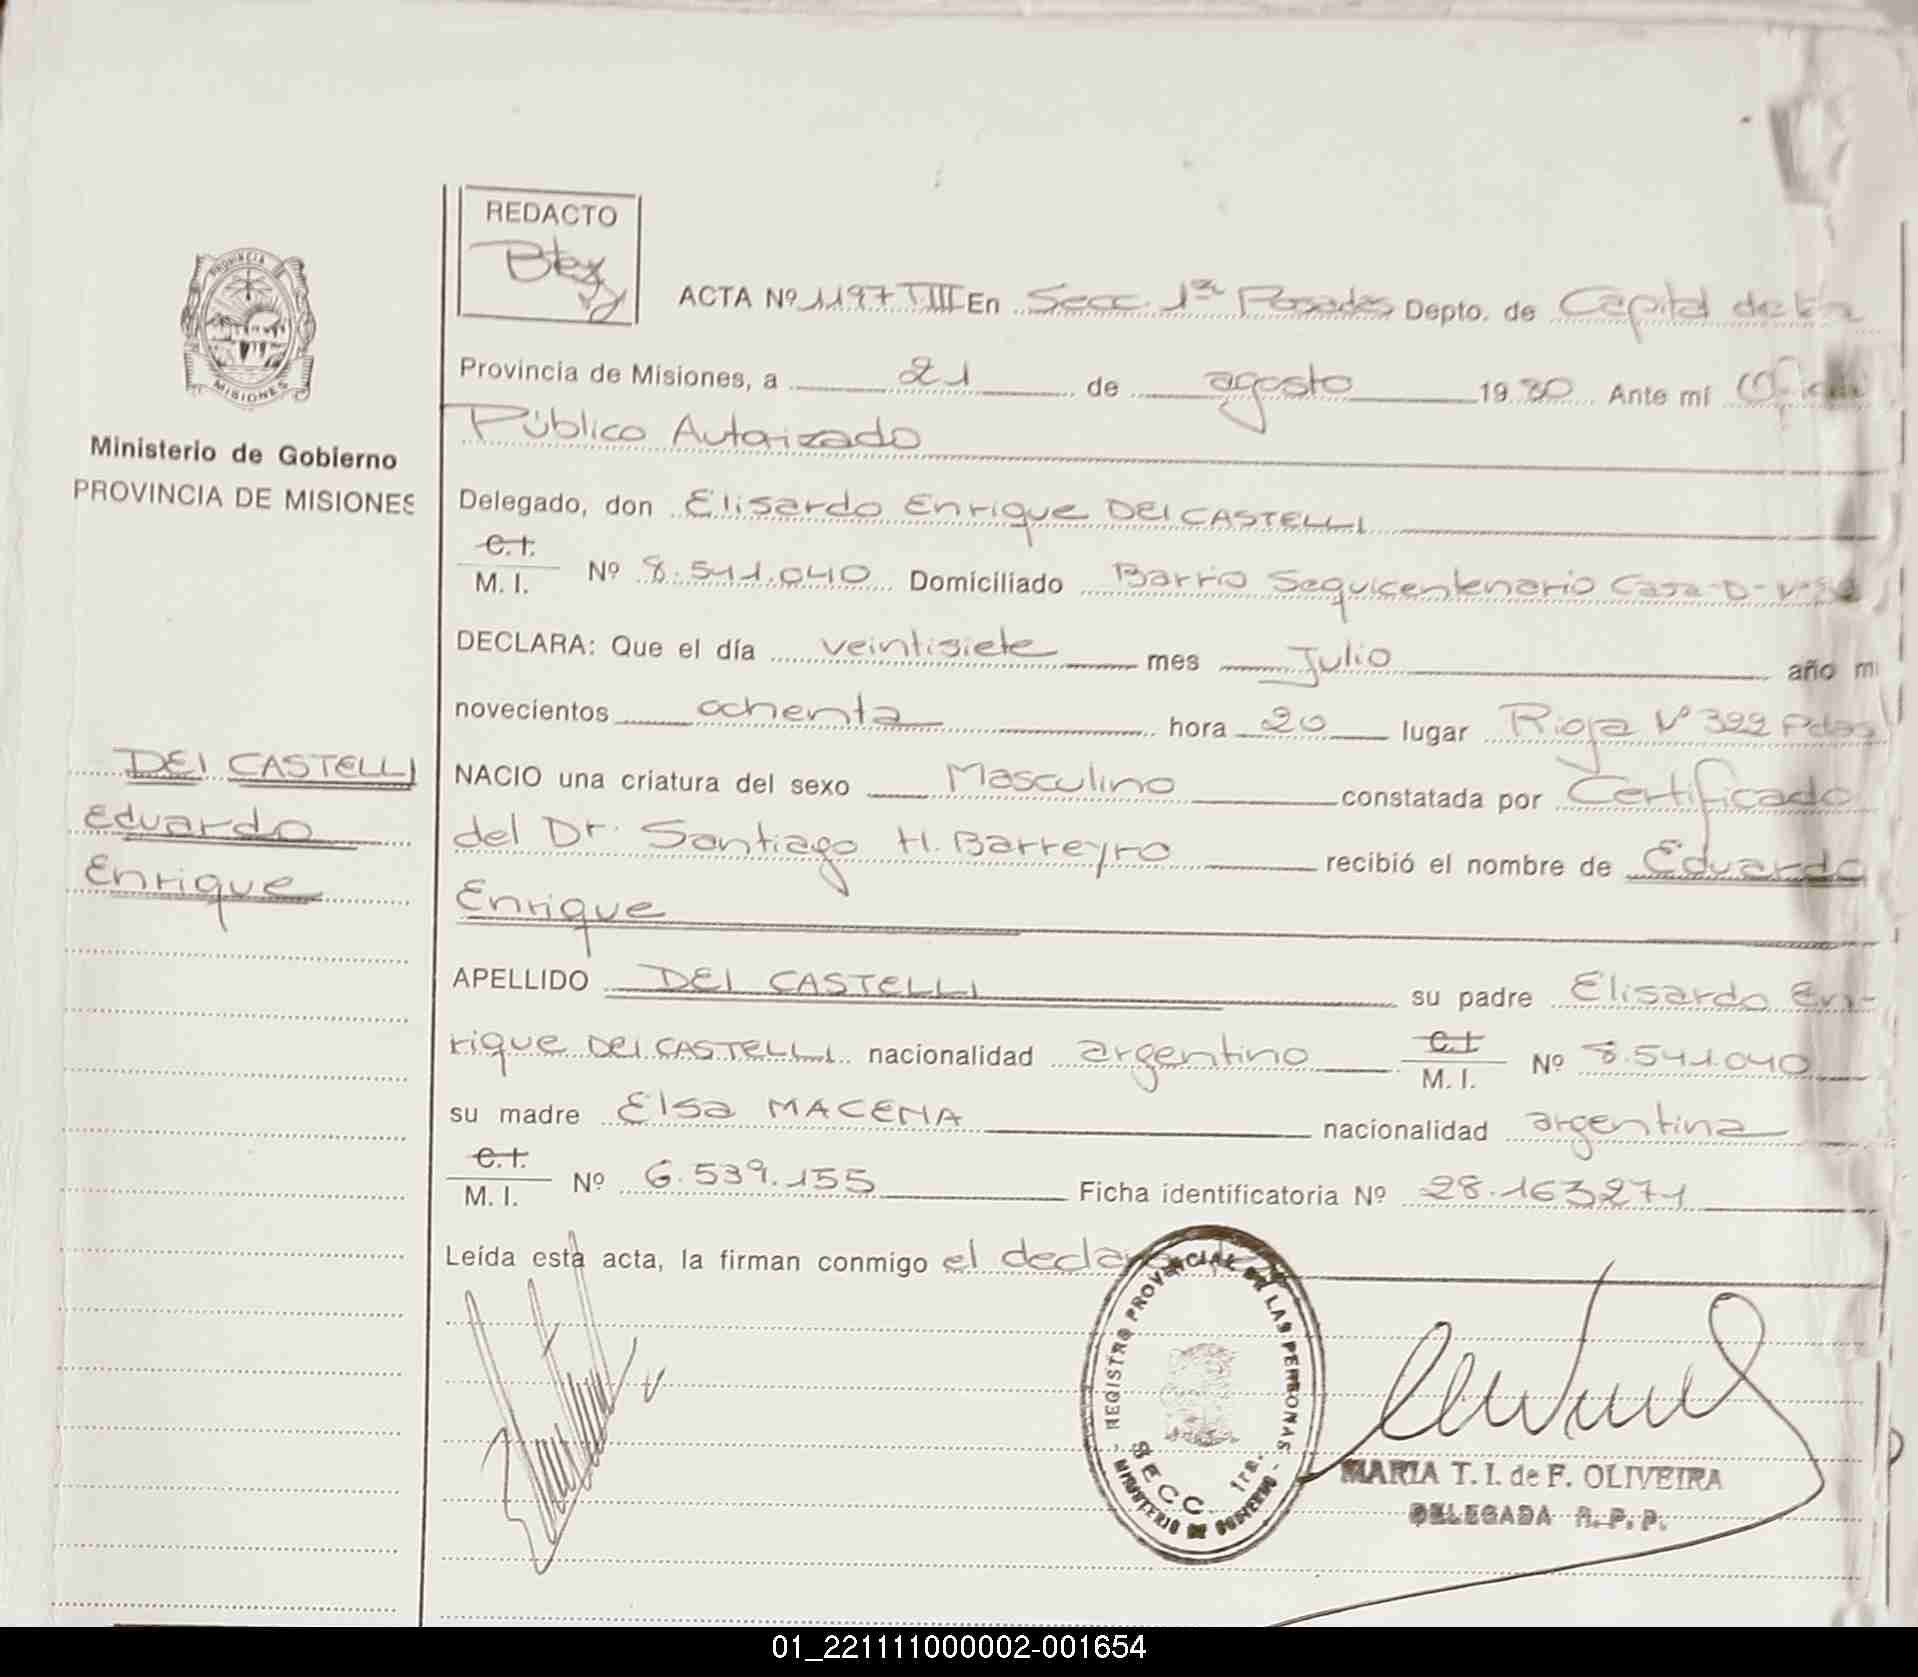 REDACTO
ACTA Nº 1197 TIII En Secc. 1ra Posadas Depto. de Capital de la
Provincia de Misiones, a 21 de agosto 1980 Ante mí Oficial
Público Autorizado
PROVINCIA
MISIONES
Ministerio de Gobierno
PROVINCIA DE MISIONES
Delegado, don Elisardo Enrique DEI CASTELLI
C.I.
M. I. Nº 8.541.040 Domiciliado Barrio Sequicentenario Casa-D-
DECLARA: Que el día veintisiete mes Julio año mi
novecientos ochenta hora 20 lugar Rioja Nº 392 Pdas
NACIO una criatura del sexo Masculino constatada por Certificado
del Dr. Santiago H. Barreyro recibió el nombre de Eduardo
Enrique
DEI CASTELLI
Eduardo
Enrique
APELLIDO DEI CASTELLI su padre Elisardo En-
rique DEI CASTELLI nacionalidad argentino C.I. M. I. Nº 8.541.040
su madre Elsa MACENA nacionalidad argentina
C.I.
M. I. Nº 6.539.155 Ficha identificatoria Nº 28.163.271
Leída esta acta, la firman conmigo el
REGISTRO PROVINCIAL DE LAS PERSONAS
SECC. 1ra.
MINISTERIO DE GOBIERNO
MARIA T. I. de F. OLIVEIRA
DELEGADA R. P. P.
01_221111000002-001654